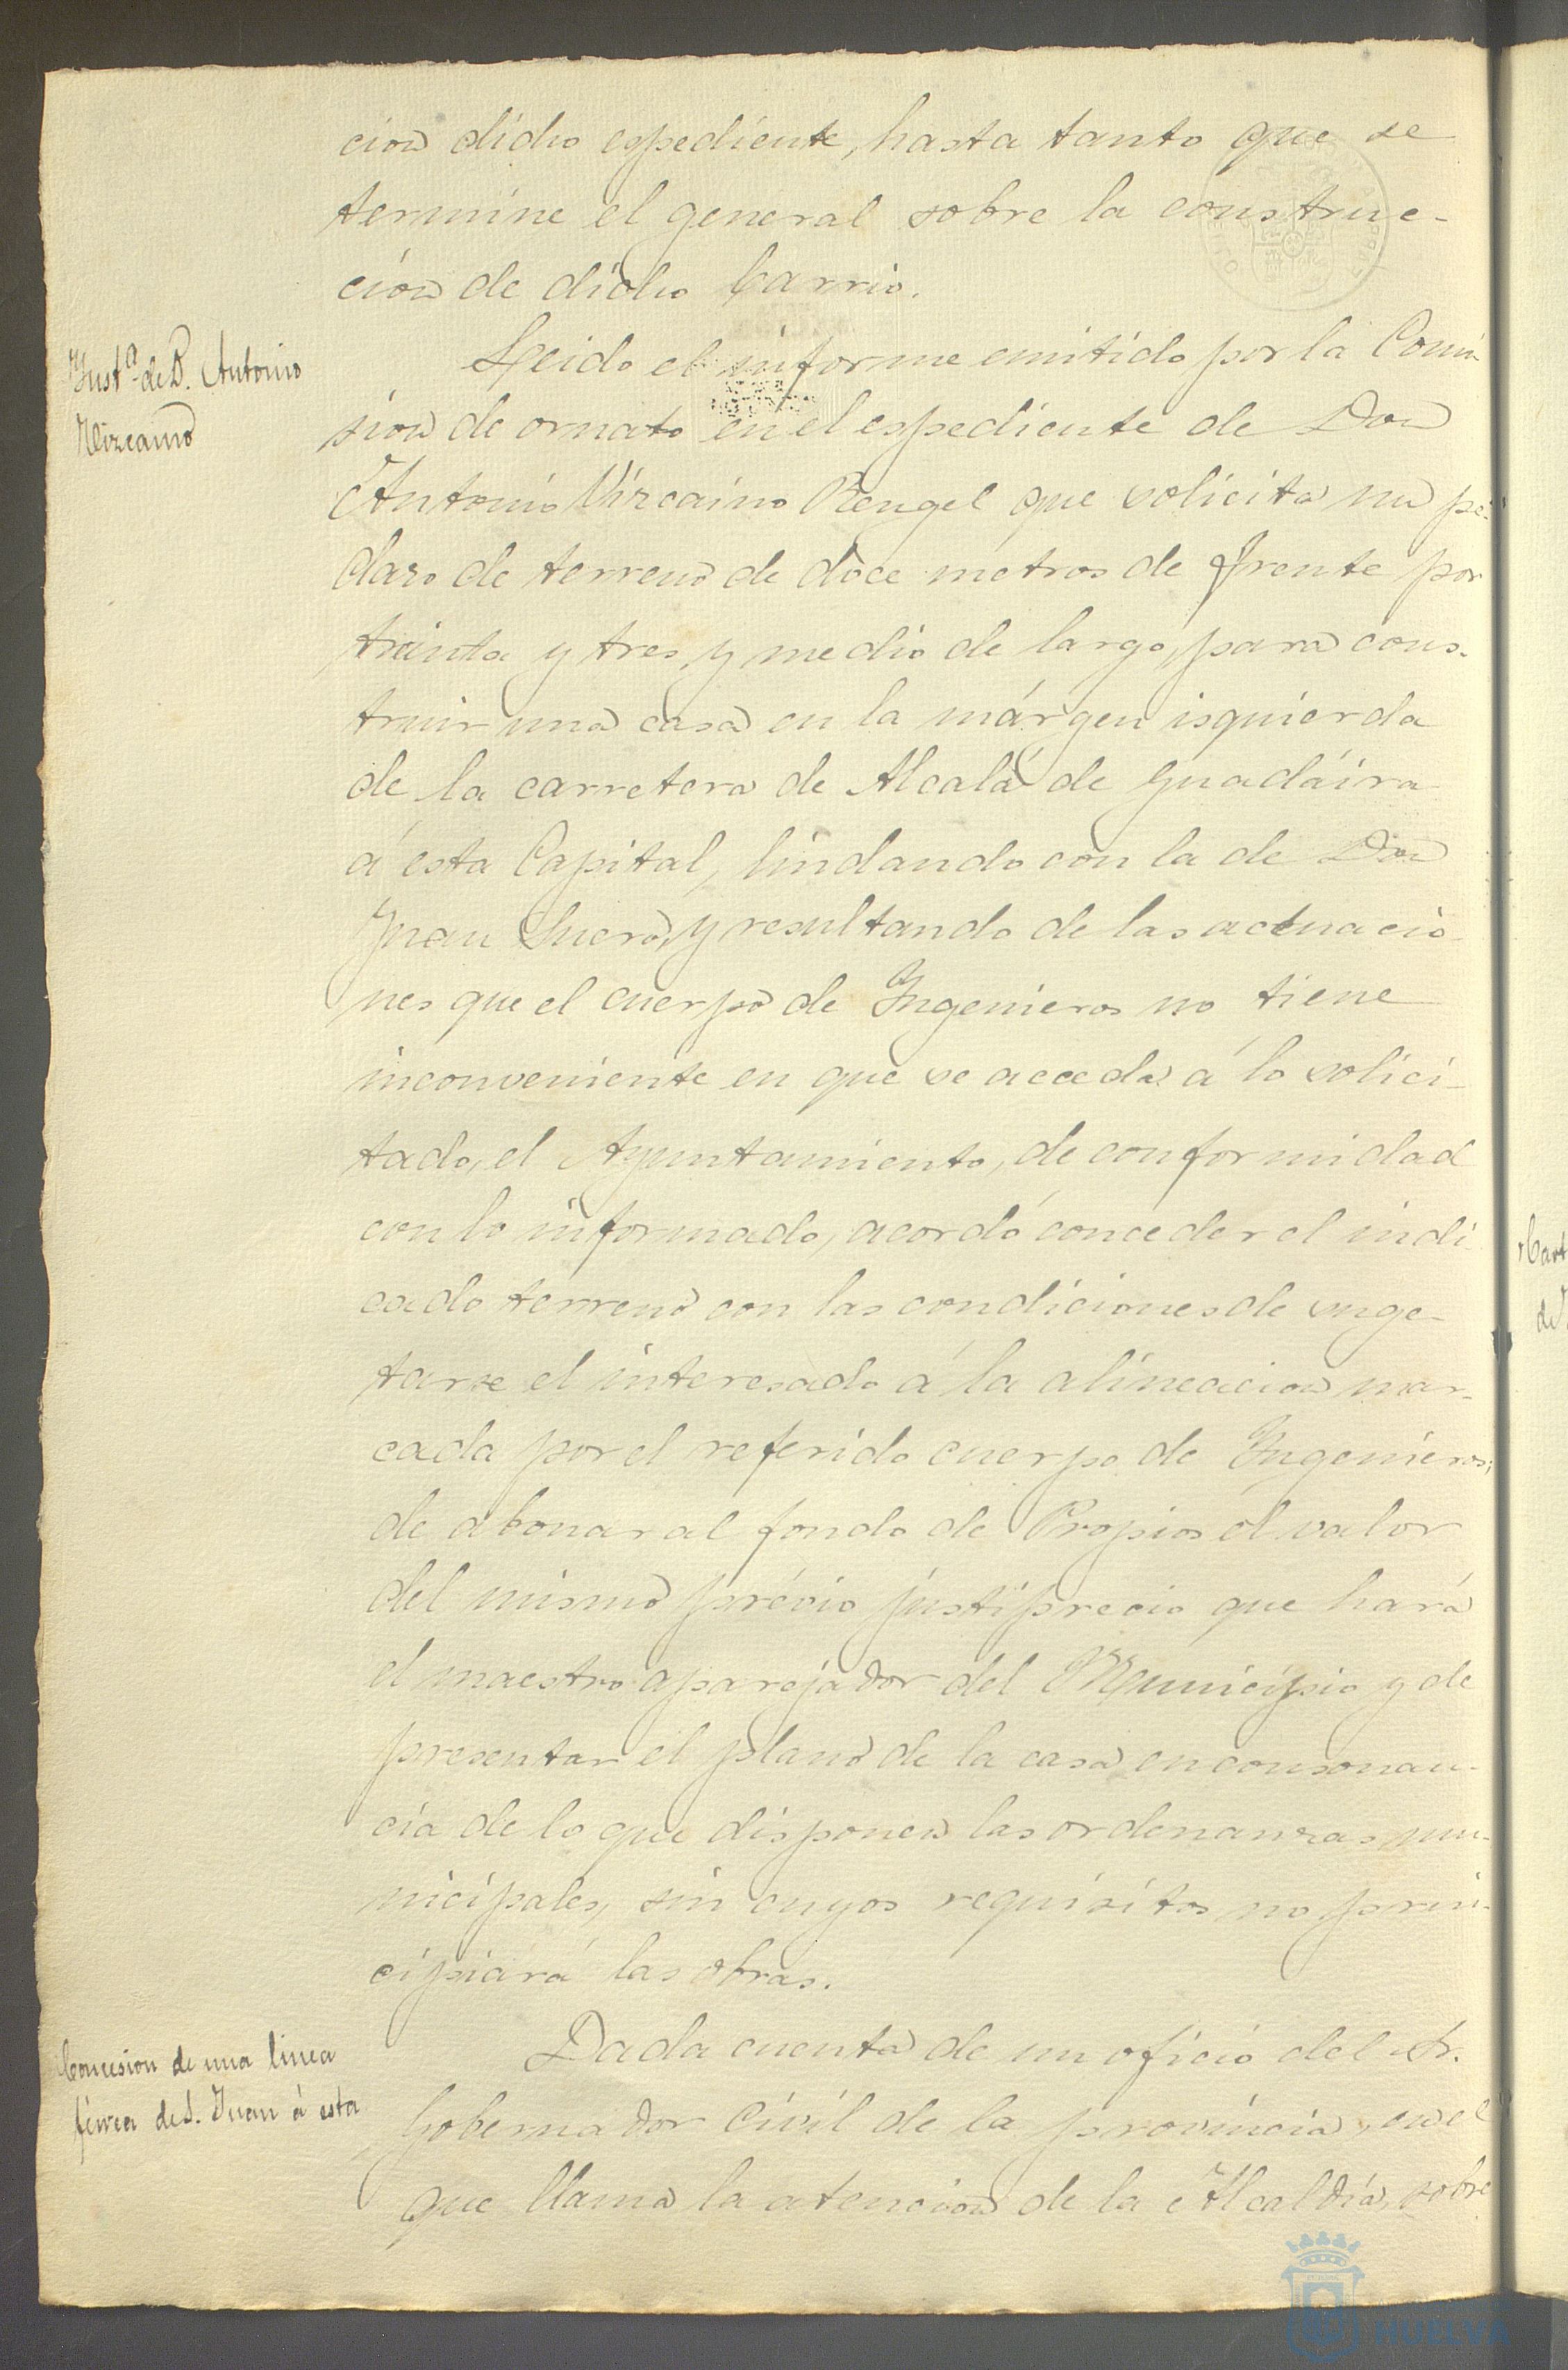 cion dicho espediente, hasta tanto que se
termine el general sobre la construc-
cion de dicho barrio.
Inst.ª de D. Antonio
Vizcaino
Leido el informe emitido por la Comi-
sion de ornato en el espediente de Don
Antonio Vizcaino Rengel que solicita un pe-
dazo de terreno de doce metros de frente por
treinta y tres y medio de largo, para cons-
truir una casa en la márgen isquierda
de la carretera de Alcalá de Guadáira
á esta Capital, lindando con la de Don
Juan Suero, y resultando de las actuacio
nes que el cuerpo de Ingenieros no tiene
inconveniente en que se acceda á lo solici-
tado, el Ayuntamiento, de conformidad
con lo informado, acordó conceder el indi
cado terreno con las condiciones de suge-
tarse el interesado á la alineacion mar-
cada por el referido cuerpo de Ingenieros;
de abonar al fondo de Propios el valor
del mismo prévio justiprecio que hará
el maestro aparejador del Municipio y de
presentar el plano de la casa en consonan-
cia de lo que disponen las ordenanzas mu-
nicipales, sin cuyos requisitos no prin-
cipiará las obras.
Concesion de una linea
férrea de S. Juan á esta
Dada cuenta de un oficio del Sr.
Gobernador Civil de la provincia, en el
que llama la atencion de la Alcaldía, sobre
HUELVA